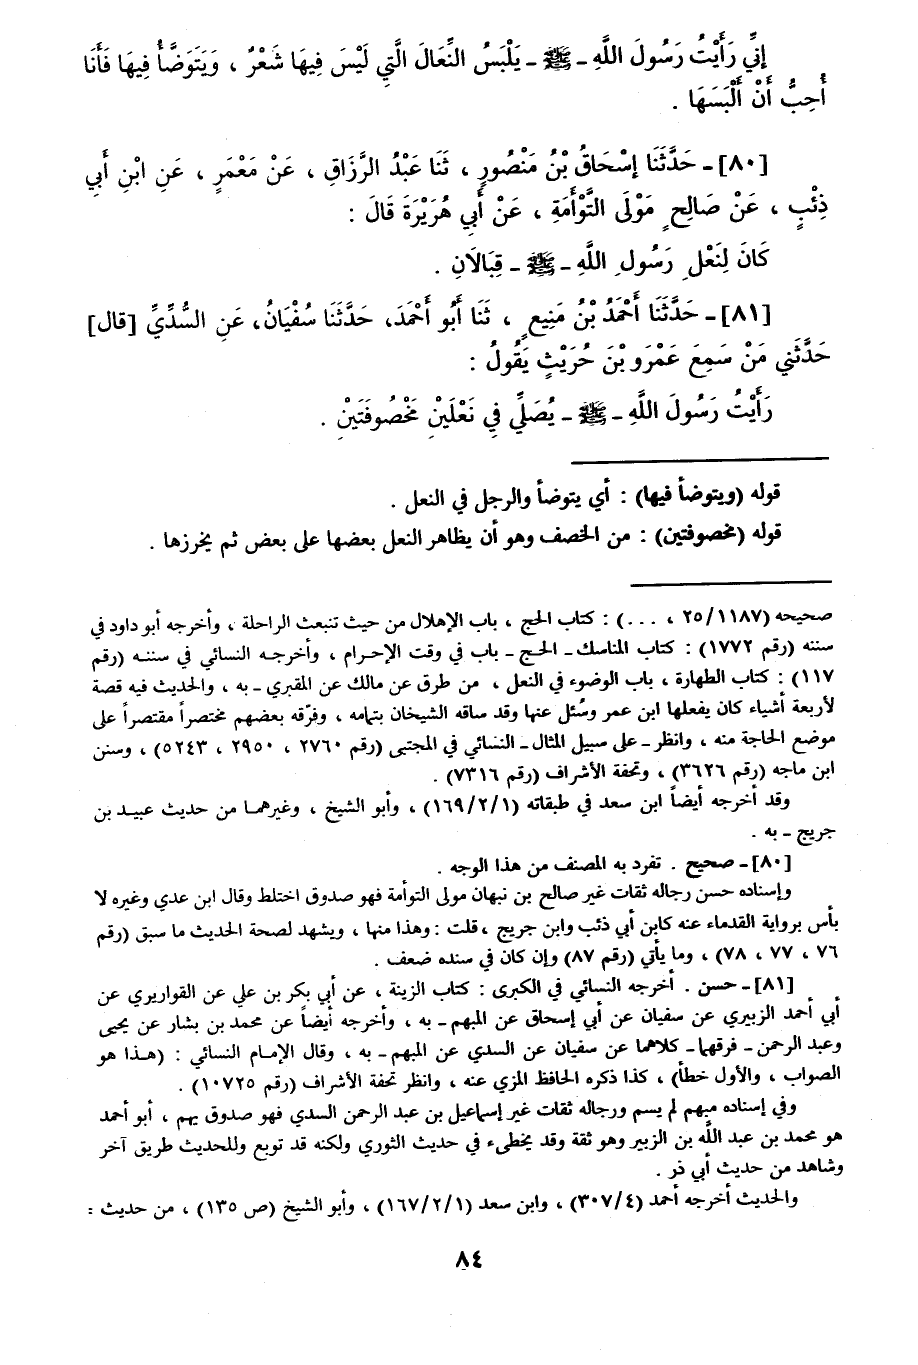 إنِّي رَأَيْتُ رَسُولَ اللَّهِ ـ ﷺ ـ يَلْبَسُ النِّعَالَ الَّتِي لَيْسَ فِيهَا شَعْرٌ ، وَيَتَوَضَّأُ فِيهَا فَأَنَا
أُحِبُّ أَنْ أَلْبَسَهَا .
[٨٠] ـ حَدَّثَنَا إسْحَاقُ بْنُ مَنْصُورٍ ، ثَنَا عَبْدُ الرَّزَاقِ ، عَنْ مَعْمَرٍ ، عَنِ ابْنِ أَبِي
ذِئْبٍ ، عَنْ صَالِحٍ مَوْلَى التَّوْأَمَةِ ، عَنْ أَبِي هُرَيْرَةَ قَالَ :
كَانَ لِنَعْلِ رَسُولِ اللَّهِ ـ ﷺ ـ قِبَالَانِ .
[٨١] ـ حَدَّثَنَا أَحْمَدُ بْنُ مَنِيعٍ ، ثَنَا أَبُو أَحْمَدَ، حَدَّثَنَا سُفْيَانُ، عَنِ السُّدِّيِّ [قال]
حَدَّثَنِي مَنْ سَمِعَ عَمْرَو بْنَ حُرَيْثٍ يَقُولُ :
رَأَيْتُ رَسُولَ اللَّهِ ـ ﷺ ـ يُصَلِّي فِي نَعْلَيْنِ مَخْصُوفَتَيْنِ .
قوله (ويتوضأ فيها) : أي يتوضأ والرجل في النعل .
قوله (مخصوفتين) : من الخصف وهو أن يظاهر النعل بعضها على بعض ثم يخرزها .
صحيحه (٢٥/١١٨٧ ، ...) : كتاب الحج ، باب الإهلال من حيث تنبعث الراحلة ، وأخرجه أبو داود في
سننه (رقم ١٧٧٢) : كتاب المناسك ـ الحج ـ باب في وقت الإحرام ، وأخرجه النسائي في سننه (رقم
١١٧) : كتاب الطهارة ، باب الوضوء في النعل ، من طرق عن مالك عن المقبري ـ به ، والحديث فيه قصة
لأربعة أشياء كان يفعلها ابن عمر وسُئل عنها وقد ساقه الشيخان بتمامه ، وفرّقه بعضهم مختصراً مقتصراً على
موضع الحاجة منه ، وانظر ـ على سبيل المثال ـ النسائي في المجتبى (رقم ٢٧٦٠ ، ٢٩٥٠ ، ٥٢٤٣) ، وسنن
ابن ماجه (رقم ٣٦٢٦) ، وتحفة الأشراف (رقم ٧٣١٦) .
وقد أخرجه أيضاً ابن سعد في طبقاته (١٦٩/٢/١) ، وأبو الشيخ ، وغيرهما من حديث عبيد بن
جريج ـ به .
[٨٠] ـ صحيح . تفرد به المصنف من هذا الوجه .
وإسناده حسن رجاله ثقات غير صالح بن نبهان مولى التوأمة فهو صدوق اختلط وقال ابن عدي وغيره لا
بأس برواية القدماء عنه كابن أبي ذئب وابن جريج ، قلت : وهذا منها ، ويشهد لصحة الحديث ما سبق (رقم
٧٦ ، ٧٧ ، ٧٨) ، وما يأتي (رقم ٨٧) وإن كان في سنده ضعف .
[٨١] ـ حسن . أخرجه النسائي في الكبرى : كتاب الزينة ، عن أبي بكر بن علي عن القواريري عن
أبي أحمد الزبيري عن سفيان عن أبي إسحاق عن المبهم ـ به ، وأخرجه أيضاً عن محمد بن بشار عن يحيى
وعبد الرحمن ـ فرقهما ـ كلاهما عن سفيان عن السدي عن المبهم ـ به ، وقال الإمام النسائي : (هذا هو
الصواب ، والأول خطأ) ، كذا ذكره الحافظ المزي عنه ، وانظر تحفة الأشراف (رقم ١٠٧٢٥) .
وفي إسناده مبهم لم يسم ورجاله ثقات غير إسماعيل بن عبد الرحمن السدي فهو صدوق يهم ، أبو أحمد
هو محمد بن عبد اللَّه بن الزبير وهو ثقة وقد يخطىء في حديث الثوري ولكنه قد توبع وللحديث طريق آخر
وشاهد من حديث أبي ذر .
والحديث أخرجه أحمد (٣٠٧/٤) ، وابن سعد (١٦٧/٢/١) ، وأبو الشيخ (ص ١٣٥) ، من حديث :
٨٤